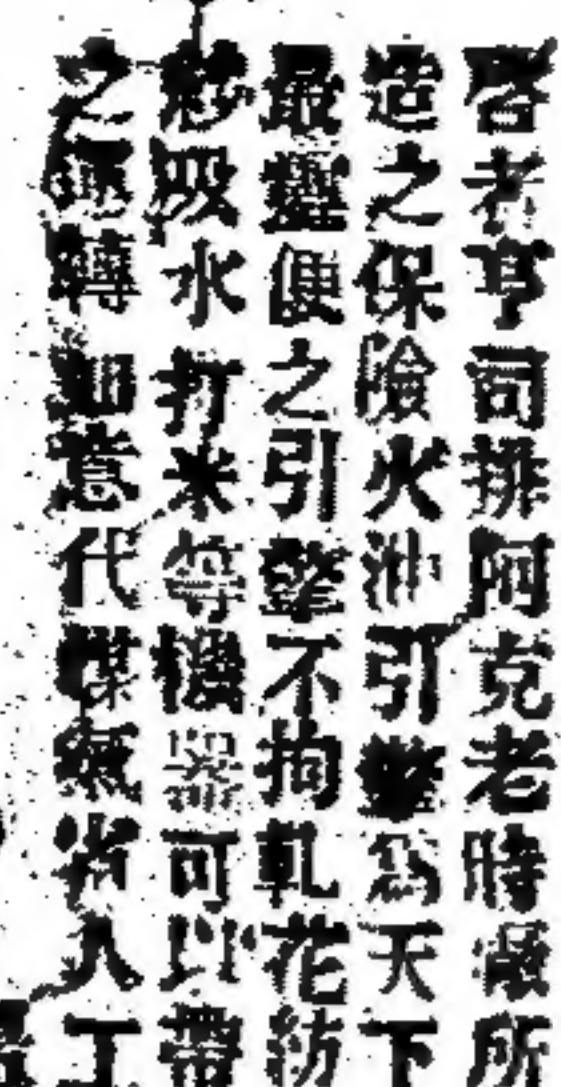 啓者亨司排阿克老時厰所
造之保險火油引擎爲天下
最靈便之引擎不拘軋花紡
紗吸水打米等機器可以帶
之運轉如意代煤氣省人工